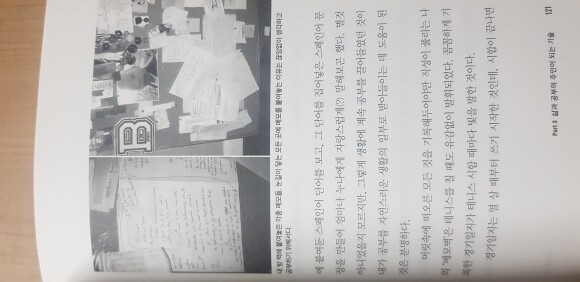 내 방 벽에 붙여놓은 각종 메모들. 눈길이 닿는 모든 곳에 메모를 붙여놓는 이유는 끊임없이 생각하고
공부하기 위해서다.
에 붙여둔 스페인어 단어를 보고, 그 단어를 집어넣은 스페인어 문
장을 만들어 엄마나 누나에게 자랑스럽게(?) 말해보곤 했다. 별것
아니었을지 모르지만, 그렇게 생활에 계속 공부를 끌어들였던 것이
내가 공부를 자연스러운 생활의 일부로 받아들이는 데 도움이 된
것은 분명하다.
머릿속에 떠오른 모든 것을 기록해두어야만 직성이 풀리는 나
의 '메모벽'은 테니스를 칠 때도 유감없이 발휘되었다. 꼼꼼하게 기
록한 경기일지가 테니스 시합 때마다 빛을 발한 것이다.
경기일지는 열 살 때부터 쓰기 시작한 것인데, 시합이 끝나면
Part 3 삶과 공부의 주인이 되는 기술
121